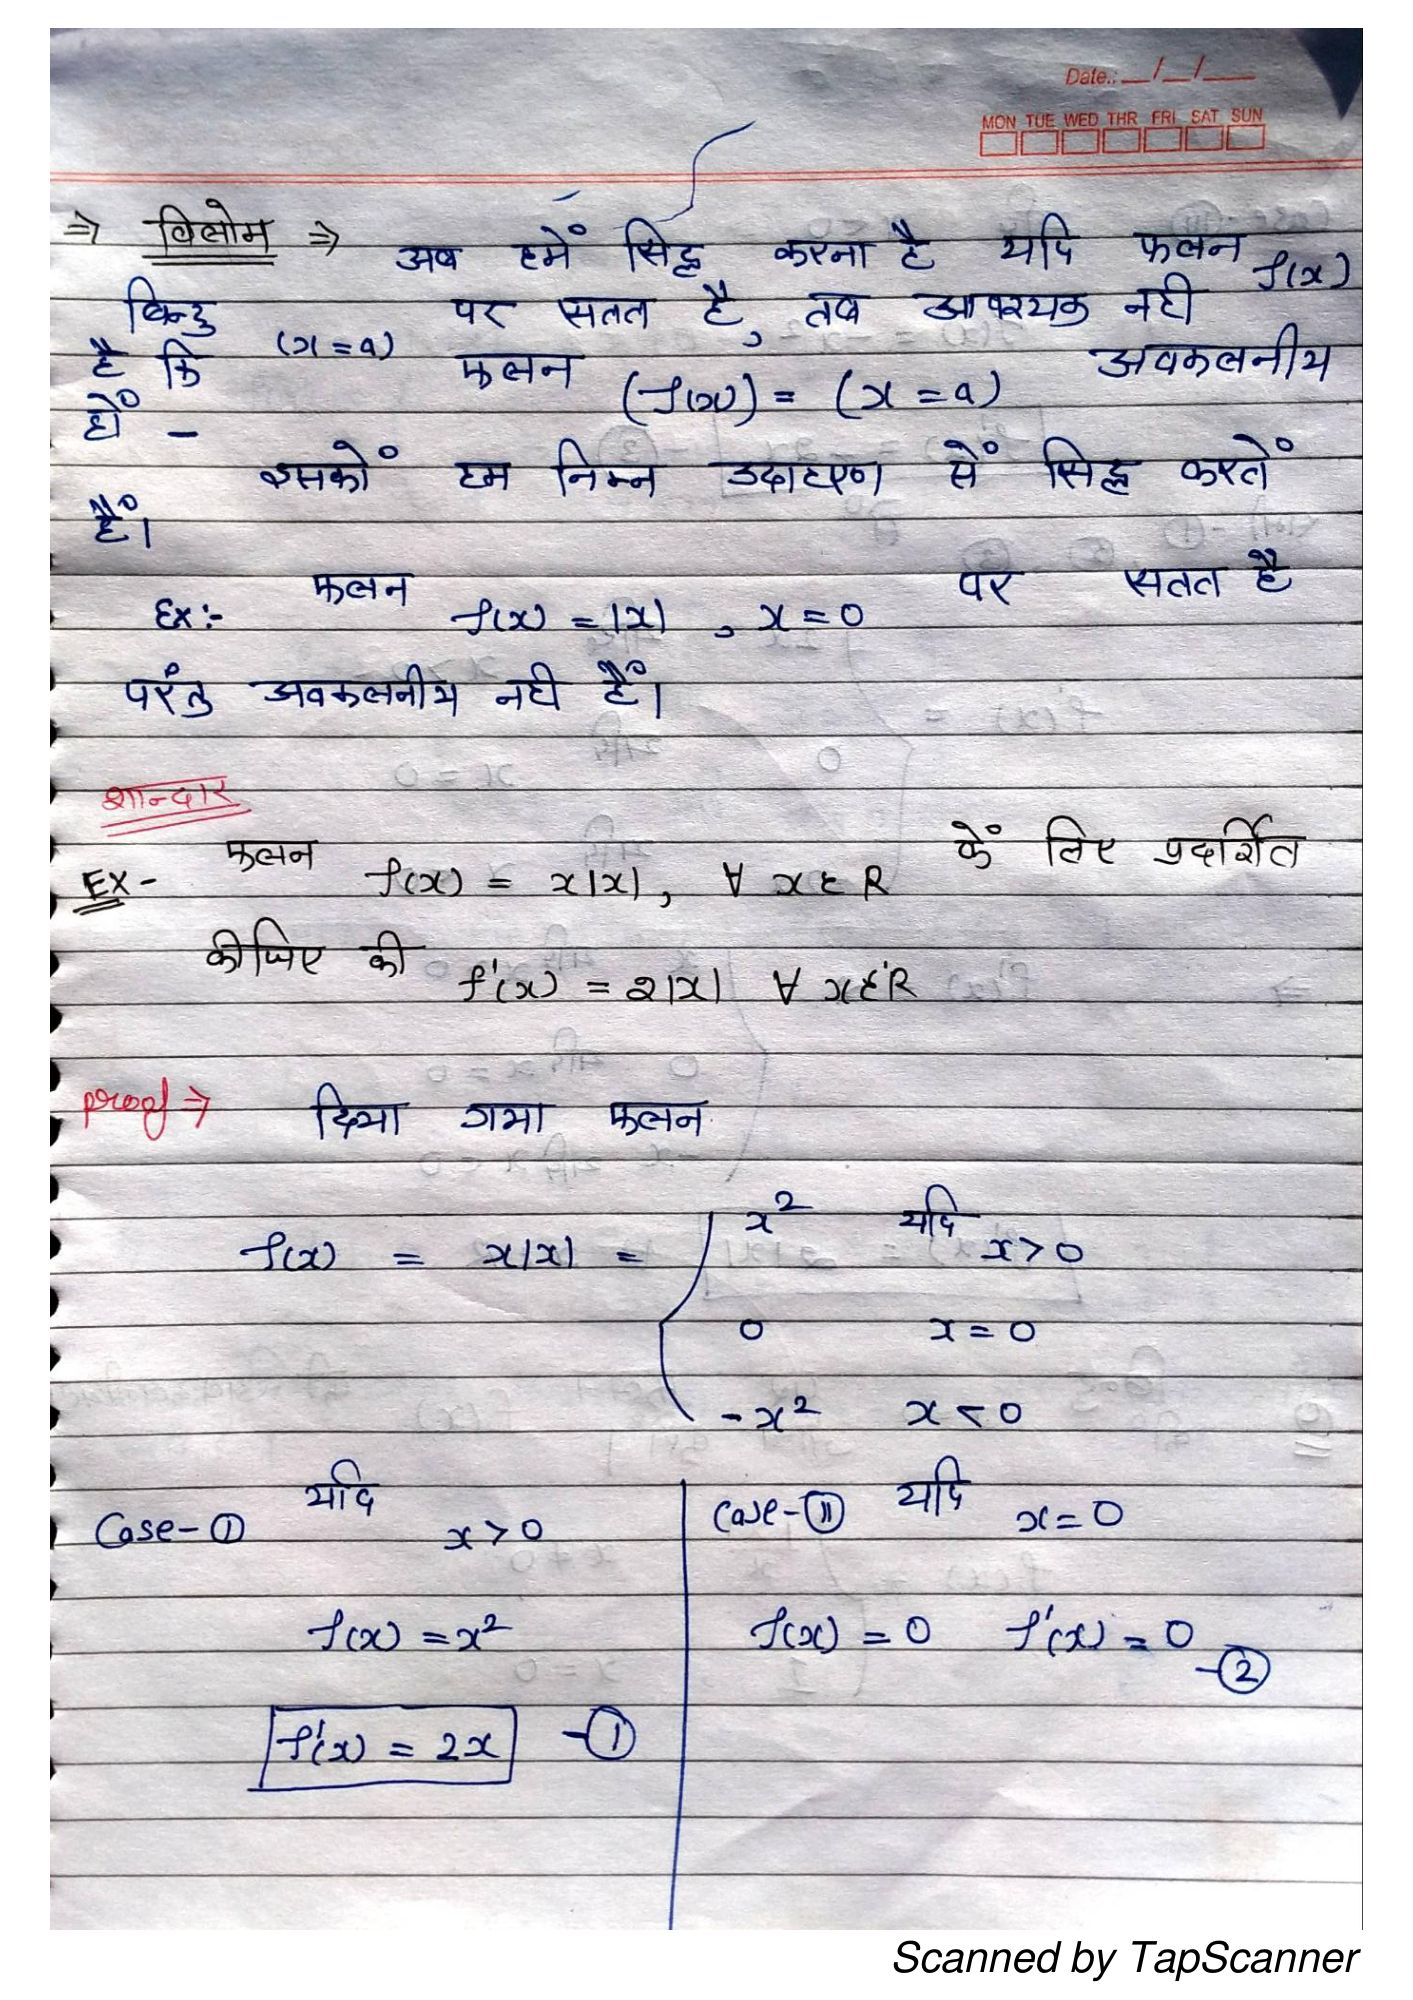 Date.: __/__/__
MON TUE WED THR FRI SAT SUN
⇒ विलोम ⇒ अब हमें सिद्ध करना है यदि फलन f(x)
बिन्दु (x=a) पर सतत है, तब आवश्यक नही
है कि फलन (f(x)) = (x=a) अवकलनीय
हों -
इसकों हम निम्न उदाहरण सें सिद्ध करतें
हैं।
Ex:- फलन f(x) = |x| , x=0 पर सतत है
परंतु अवकलनीय नही हैं।
शान्दार
Ex- फलन f(x) = x|x|, ∀ x ε R कें लिए प्रदर्शित
कीजिए की f'(x) = 2|x| ∀ x ε R
proof ⇒ दिया गया फलन
x² यदि x>0
f(x) = x|x| =
0 x=0
-x² x<0
Case-① यदि x>0
Case-② यदि x=0
f(x) = x²
f(x) = 0 f'(x) = 0 -②
f'(x) = 2x -①
Scanned by TapScanner